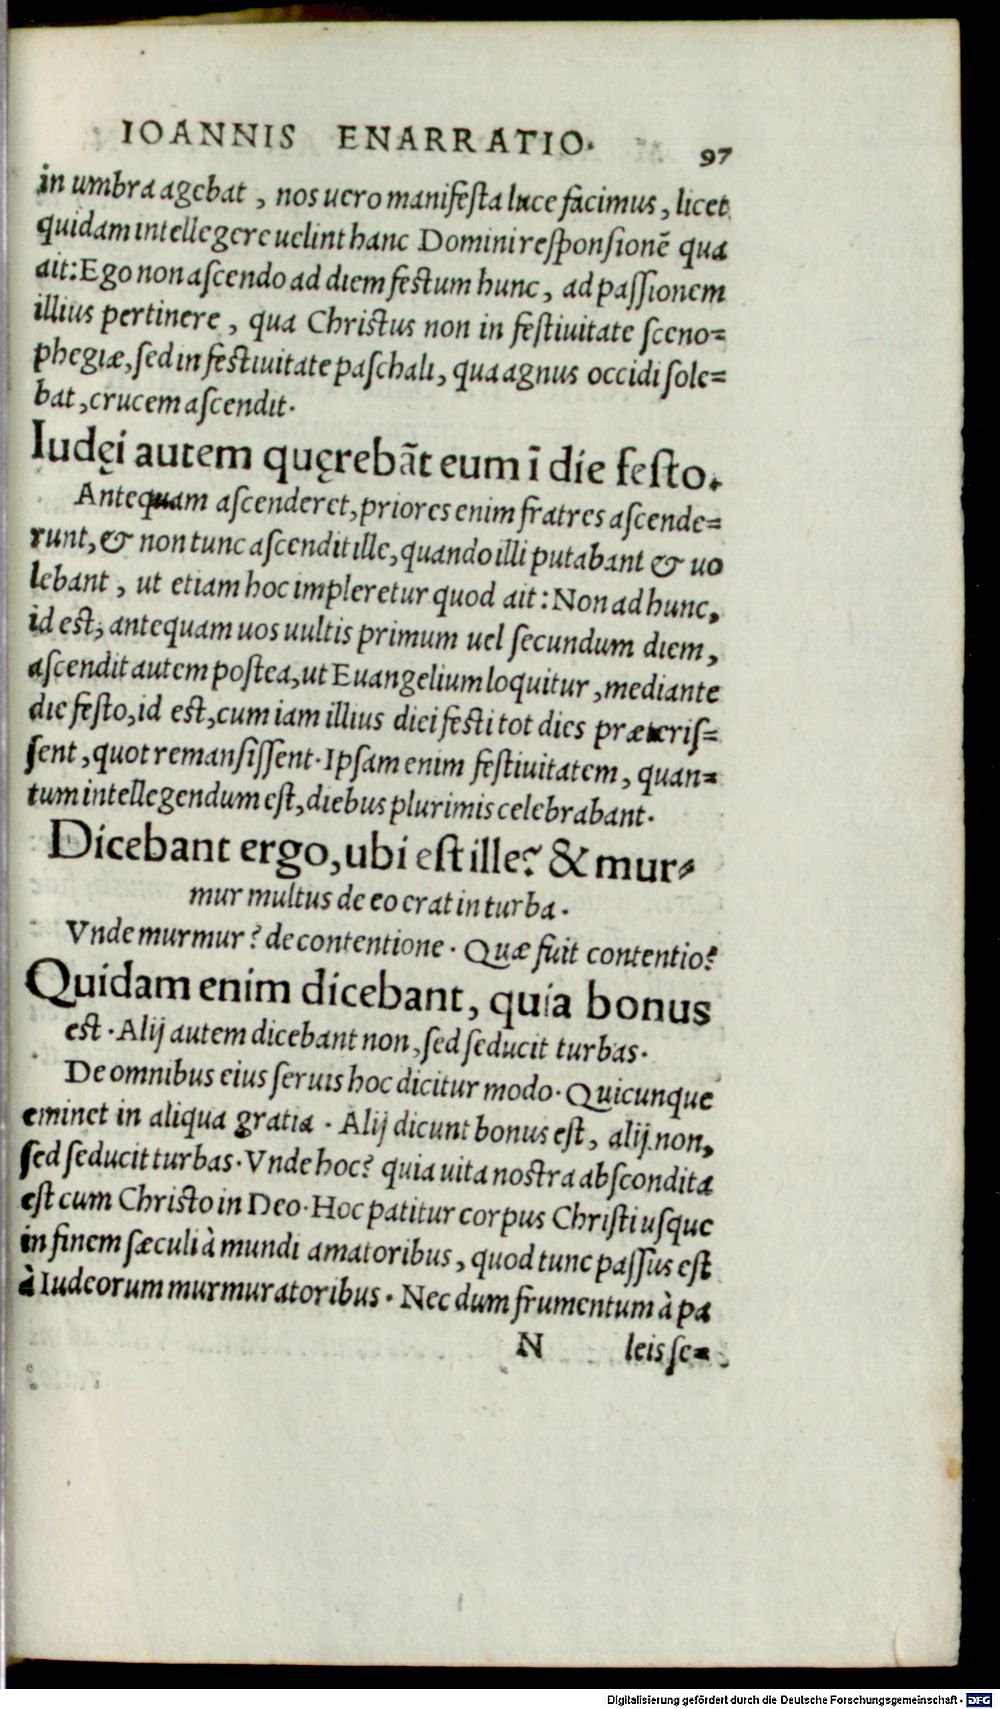 IOANNIS ENARRATIO. 97
in umbra agebat, nos uero manifesta luce facimus, licet
quidam intellegere uelint hanc Domini responsionē qua
ait: Ego non ascendo ad diem festum hunc, ad passionem
illius pertinere, qua Christus non in festiuitate sceno=
phegiæ, sed in festiuitate paschali, qua agnus occidi sole=
bat, crucem ascendit.
Iudęi autem quęrebāt eum ī die festo.
Antequam ascenderet, priores enim fratres ascende=
runt, & non tunc ascendit ille, quando illi putabant & uo
lebant, ut etiam hoc impleretur quod ait: Non ad hunc,
id est, antequam uos uultis primum uel secundum diem,
ascendit autem postea, ut Euangelium loquitur, mediante
die festo, id est, cum iam illius diei festi tot dies præteris=
sent, quot remansissent. Ipsam enim festiuitatem, quan=
tum intellegendum est, diebus plurimis celebrabant.
Dicebant ergo, ubi est ille? & mur=
mur multus de eo erat in turba.
Vnde murmur? de contentione. Quæ fuit contentio?
Quidam enim dicebant, quia bonus
est. Alij autem dicebant non, sed seducit turbas.
De omnibus eius seruis hoc dicitur modo. Quicunque
eminet in aliqua gratia. Alij dicunt bonus est, alij non,
sed seducit turbas. Vnde hoc? quia uita nostra abscondita
est cum Christo in Deo. Hoc patitur corpus Christi usque
in finem sæculi à mundi amatoribus, quod tunc passus est
à Iudeorum murmuratoribus. Nec dum frumentum à pa
N leis se=
Digitalisierung gefördert durch die Deutsche Forschungsgemeinschaft - DFG